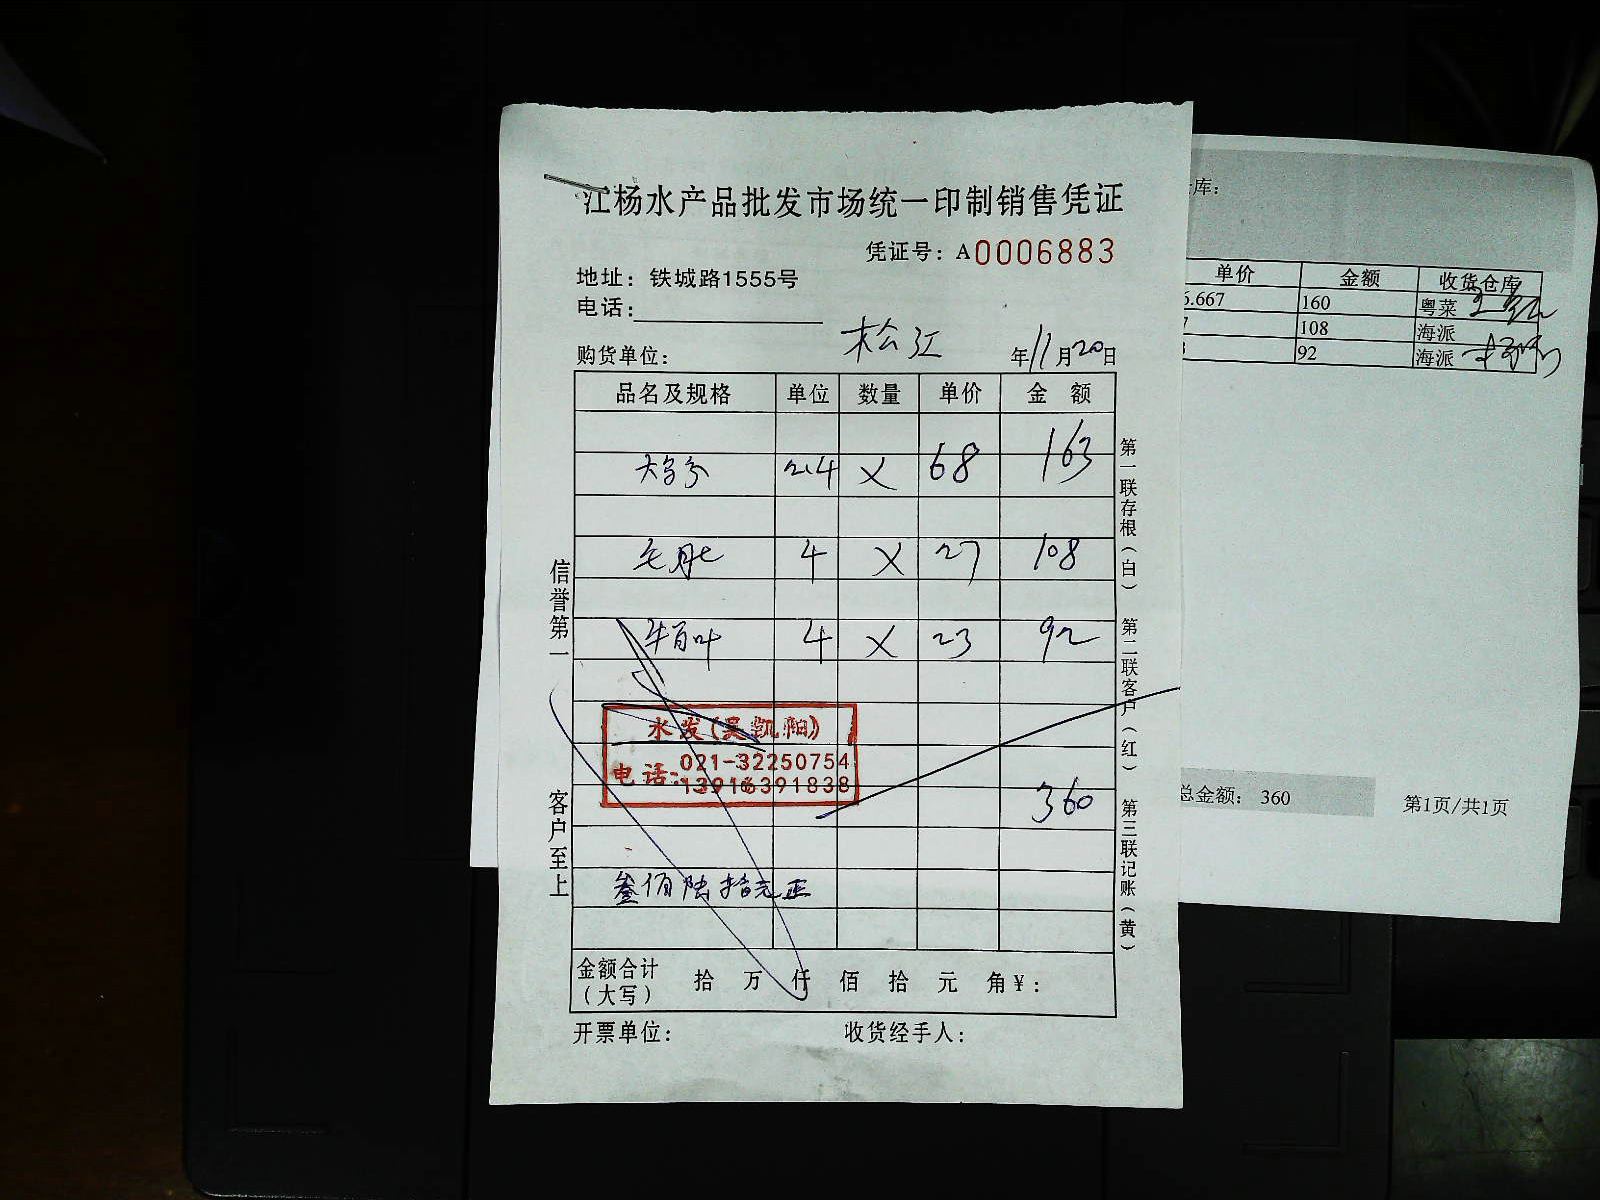 江杨水产品批发市场统一印制销售凭证
凭证号：A0006883
地址：铁城路1555号
电话：
购货单位： 松江 年11月20日
品名及规格 单位 数量 单价 金额
2.4 X 68 163
毛肚 4 X 27 108
牛百叶 4 X 23 92
水发(吴凯翔)
电话：021-32250754
13916391838
360
叁佰陆拾元正
金额合计（大写） 拾 万 仟 佰 拾 元 角￥：
开票单位： 收货经手人：
信誉第一 客户至上
第一联存根（白） 第二联客户（红） 第三联记账（黄）
库：
单价 金额 收货仓库
.667 160 粤菜
7 108 海派
92 海派
总金额： 360
第1页/共1页